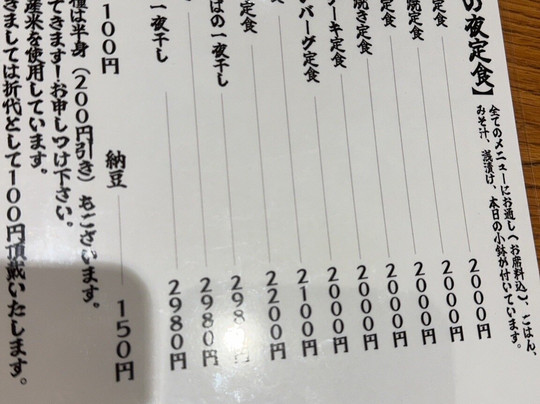 の夜定食】
全てのメニューにお通し(お席料込)、ごはん、
みそ汁、浅漬け、本日の小鉢が付いています。
定食 2000円
定食 2000円
焼定食 2000円
焼き定食 2000円
ーキ定食 2000円
バーグ定食 2100円
食 2200円
定食 298 円
ばの一夜干し 2980円
一夜干し 2980円
100円
納豆 150円
種は半身(200円引き)もございます。
できます!お申しつけ下さい。
産米を使用しています。
きましては折代として100円頂戴いたします。